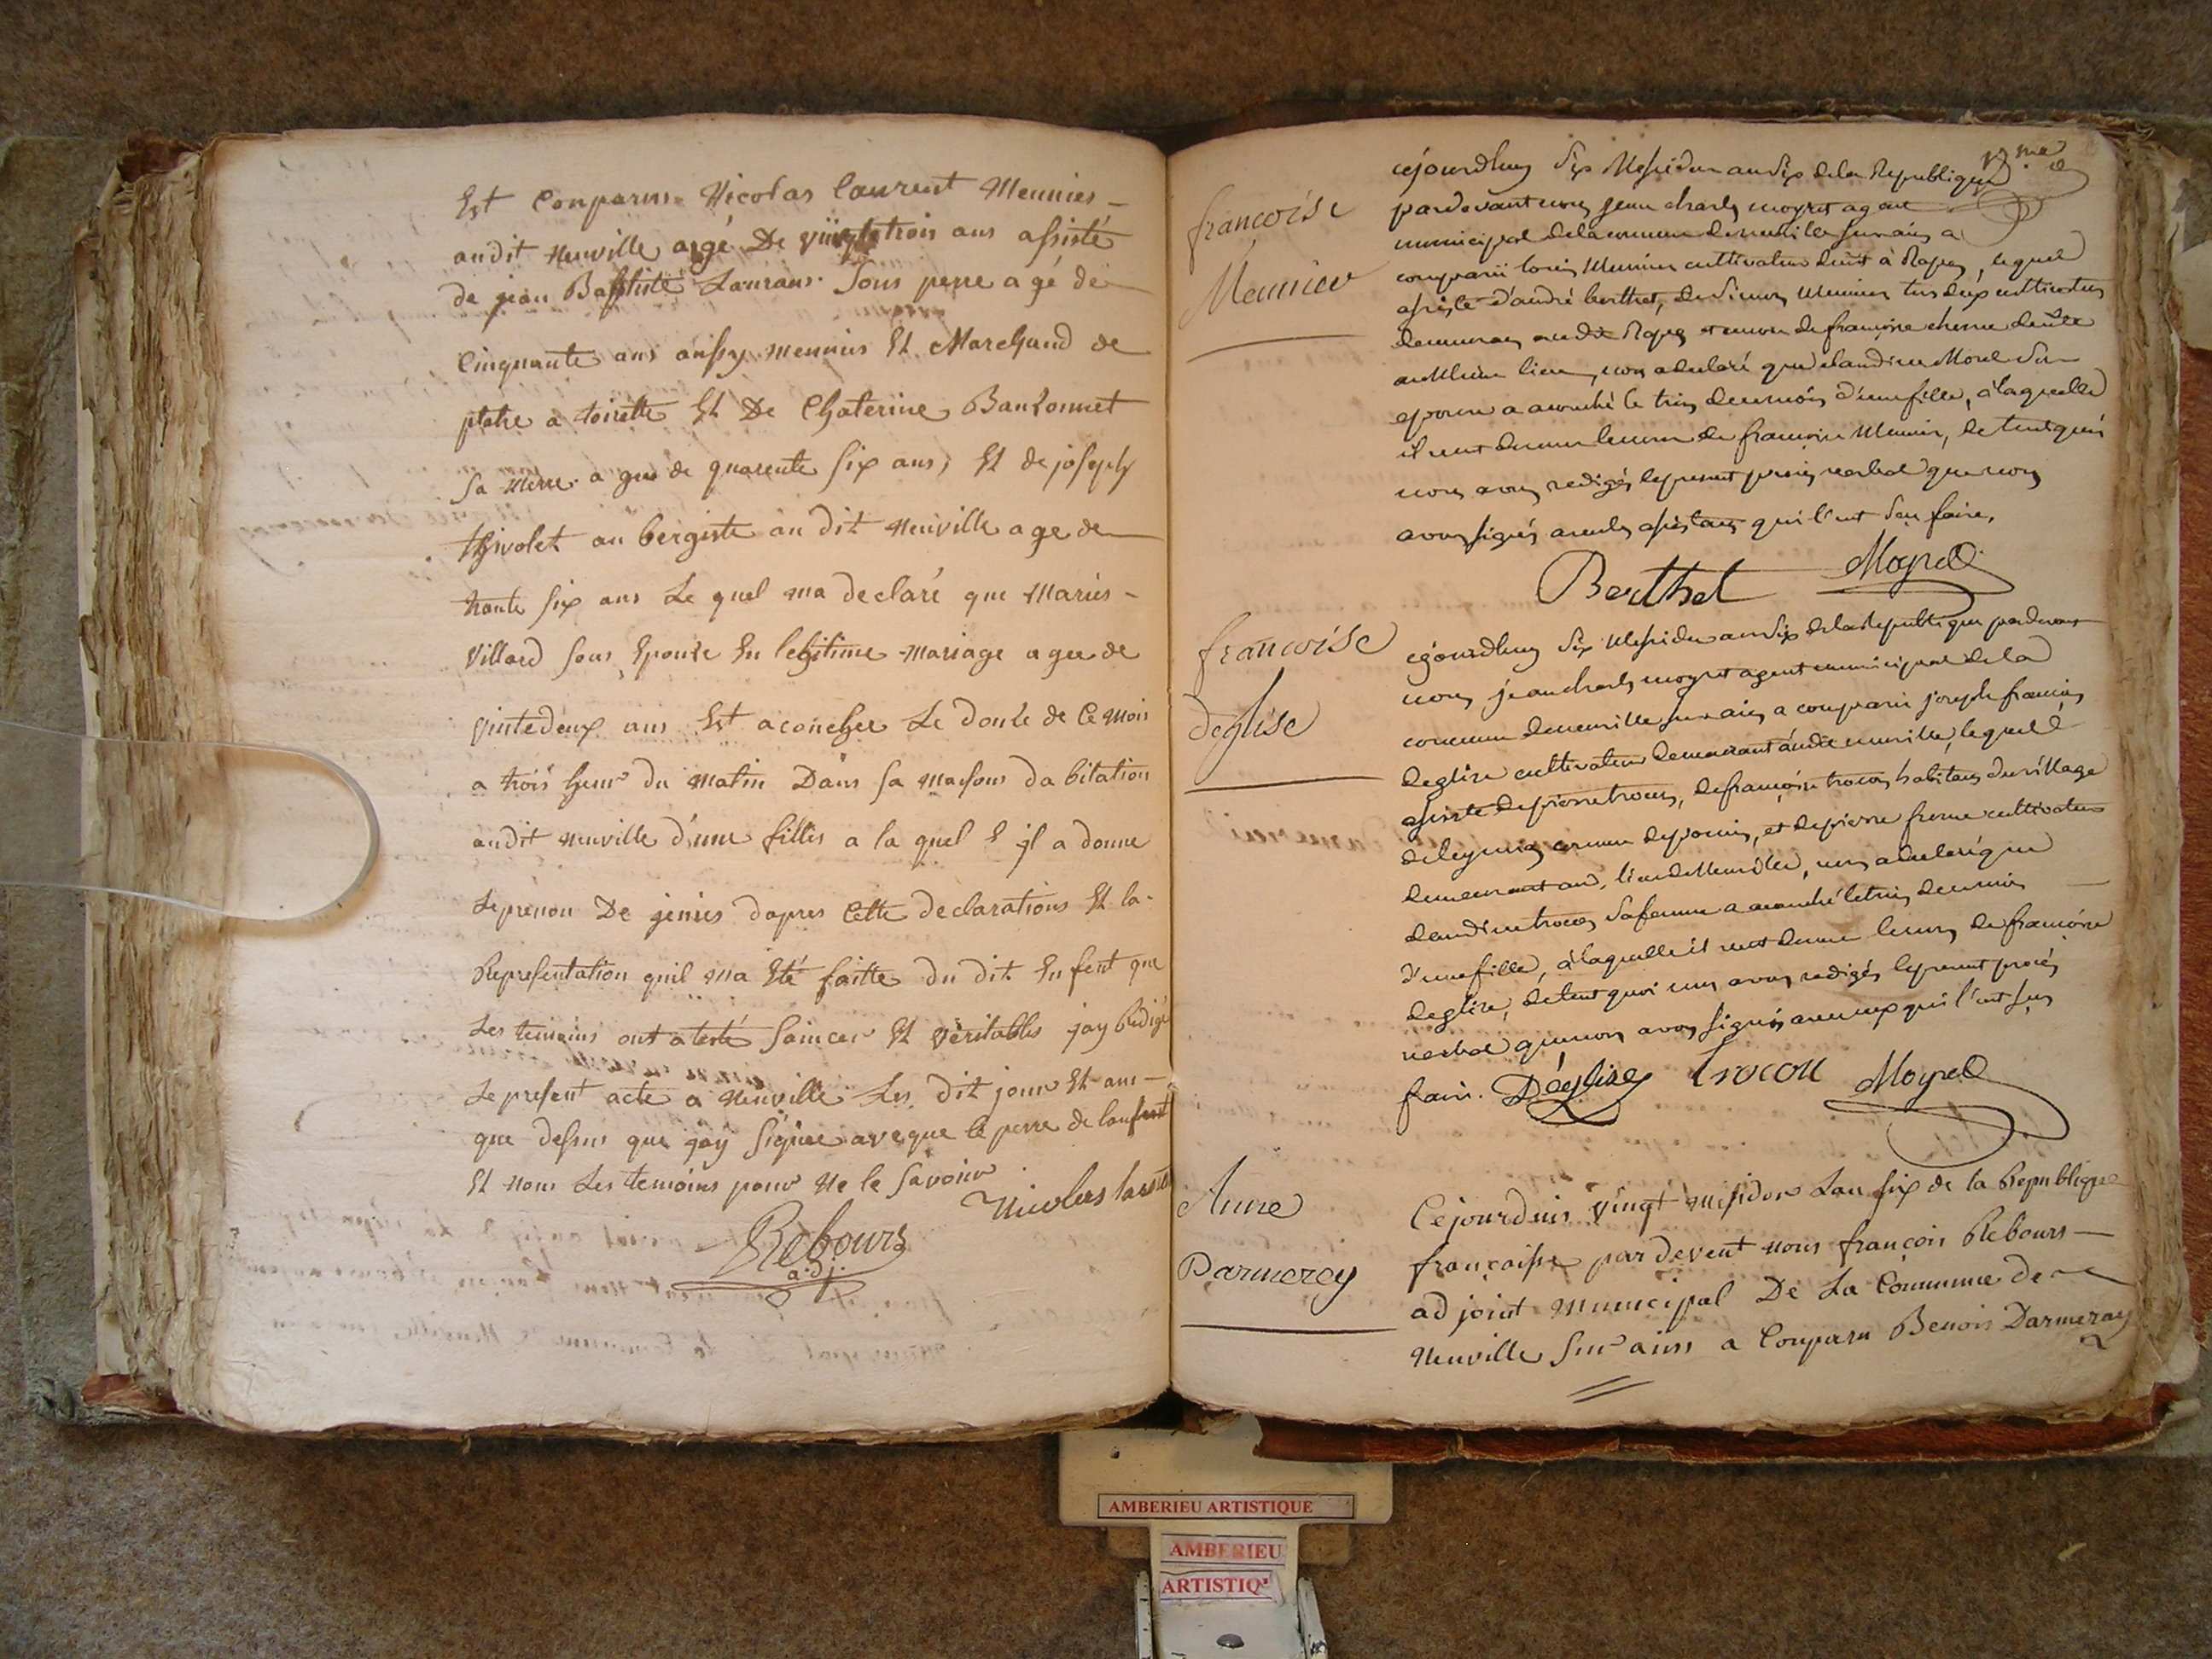 Est Conparus Nicolas laurent Meunies -
audit Neuville agé De viingtetrois ans assisté
de jean Baptiste Laurans Sous perre agé de
Cinquante ans aussy meunies Et Marchand de
platre a toirette Et De Chaterine
Sa Merre a gee de quarente six ans, Et de joseph
thivolet aubergiste au dit Neuville age de
trante six ans Le quel ma declaré que Maries -
Villard sous Epouse En legitime mariage a gee de
vintedeux ans Est acouchee Le douse de Ce mois
a trois heur du matin Dans sa maisons dabitation
audit neuville d'une filles a la quel E jl a donne
Le prenon De jenies dapres Cette declarations Et la
Representation quil ma Eté faitte du dit Enfent que
Les temoins ont atesté Saincer Et véritables jay Redigé
Le present acte a Neuville Les dit jour Et an -
que dessus que jay Signee aveque le perre de lanfent
Et nous Les temoins pour Ne le savoir
Nicolas
Rebours
adj.
francoise
Meunier
cejourdhuy six Messidor an six dela Republique
pardevant nous jean charles moyret agent
municipal dela commune deneuville sur ain a
comparu louis Meunier cultivateur à , lequel
assisté d'andré berthet, de Meunier tous deux cultivateurs
demeurans audit et encore de françoise
au Même lieu, nous adeclaré que claudine Morel son
epouse a acouché le trois du mois d'une fille, à laquelle
il veut donner lenom de françoise Meunier, de tout quoi
nous avons redigés lepresent procès verbal que nous
avons signés avec les assistans qui l'ont sçu faire.
Berthet Moyret
francoise
deglise
cejourdhuy six Messidor an six dela Republique pardevant
nous jean charles moyret agent municipal de la
commune deneuville sur ain a comparu joseph françois
deglise cultivateur demeurant audit neuville, lequel
assisté de pierre trocon, de françoise trocon habitans du village
de commune deponcin, et depierre cultivateur
demeurant aud. lieu de Neuville, nous adeclaré que
claudine trocon safemme a acouché letrois du mois
d'une fille, à laquelle il veut donner lenom de françoise
deglise, de tout quoi nous avons redigés lepresent procès
verbal que nous avons signés avec ceux qui l'ont sçu
faire. Déglise trocon Moyret
Anne
Darmerey
Cejourduis vingt messidor Lan six de la Republique
françaisse par devent nous françois Rebours -
adjoint Municipal De La Commune de
Neuville sur ains a Conparu Benois Darmeray
AMBERIEU ARTISTIQUE
AMBERIEU
ARTISTIQ